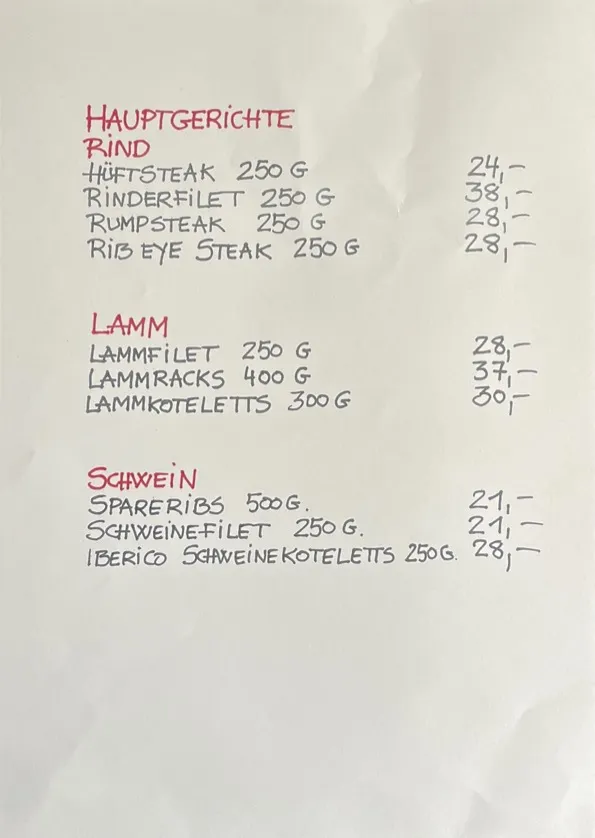 HAUPTGERiCHTE
RiND
HÜFTSTEAK 250 G 24,-
RiNDERFiLET 250 G 38,-
RUMPSTEAK 250 G 28,-
RiB EYE STEAK 250 G 28,-
LAMM
LAMMFiLET 250 G 28,-
LAMMRACKS 400 G 37,-
LAMMKOTELETTS 300 G 30,-
SCHWEiN
SPARERiBS 500 G. 21,-
SCHWEiNEFiLET 250 G. 21,-
IBERiCO SCHWEiNEKOTELETTS 250 G. 28,-